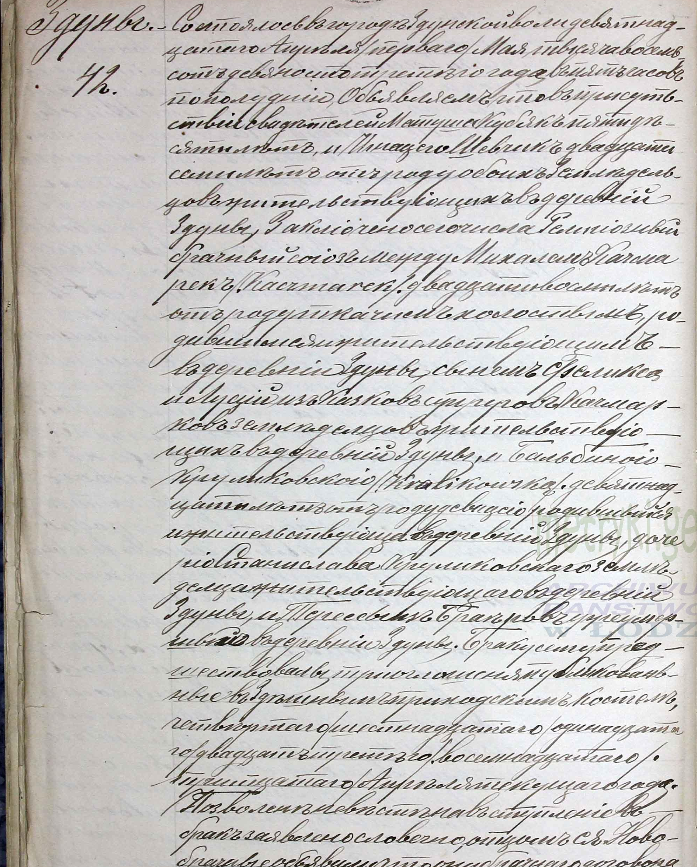 Здуны.
42.
Состоялось въ городѣ Здунской воли девятнад-
цатаго Апрѣля /перваго/ Мая, тысяча восемь
сотъ девяносто третьяго года, въ пять часовъ
по полудни, Объявляемъ что въ присут-
ствіи свидѣтелей Матуша Кубякъ пятиде-
сяти лѣтъ, и Игнацего Шевчикъ двадцати
семи лѣтъ отъ роду обоихъ Земледѣль-
цовъ жительствующихъ въ деревнѣ
Здуны, Заключено сего числа Религіозный
брачный союзъ между Михаломъ Качма
рекъ /Kaczmarek/ двадцати восьми лѣтъ
отъ роду ткачемъ холостымъ, ро-
дившимся и жительствующимъ
въ деревнѣ Здуны, сыномъ Феликса
и Луціи изъ Качмар-
ковъ земледѣлцовъ жительствую-
щихъ въ деревнѣ Здуны, и Бальбиною
Круликовского /Kralikowska/ девятнад-
цати лѣтъ отъ роду дѣвицею родившейся
и жительствующей въ деревнѣ Здуны, доче
рію Станислава Круликовскаго земле-
дѣлца жительствующаго въ деревнѣ
Здуны, и Тересы изъ умер-
шей въ деревнѣ Здуны. Браку сему пред-
шествовали три оглашенія публикован-
ные въ Здуньскимъ приходскимъ костелѣ,
четвертаго /шестнадцатаго/ одинадцата
го /двадцать третьяго/ восемнадцатаго /
тритцатаго/ Апрѣля текущаго года.
Позволеніе невѣстѣ на вступленіе въ
бракъ заявлено словесно отцомъ ея. Ново-
брачные объявили что они брачнаго договора
metryki.ge
ARCHIWUM
PAŃSTWO
W ŁODZ